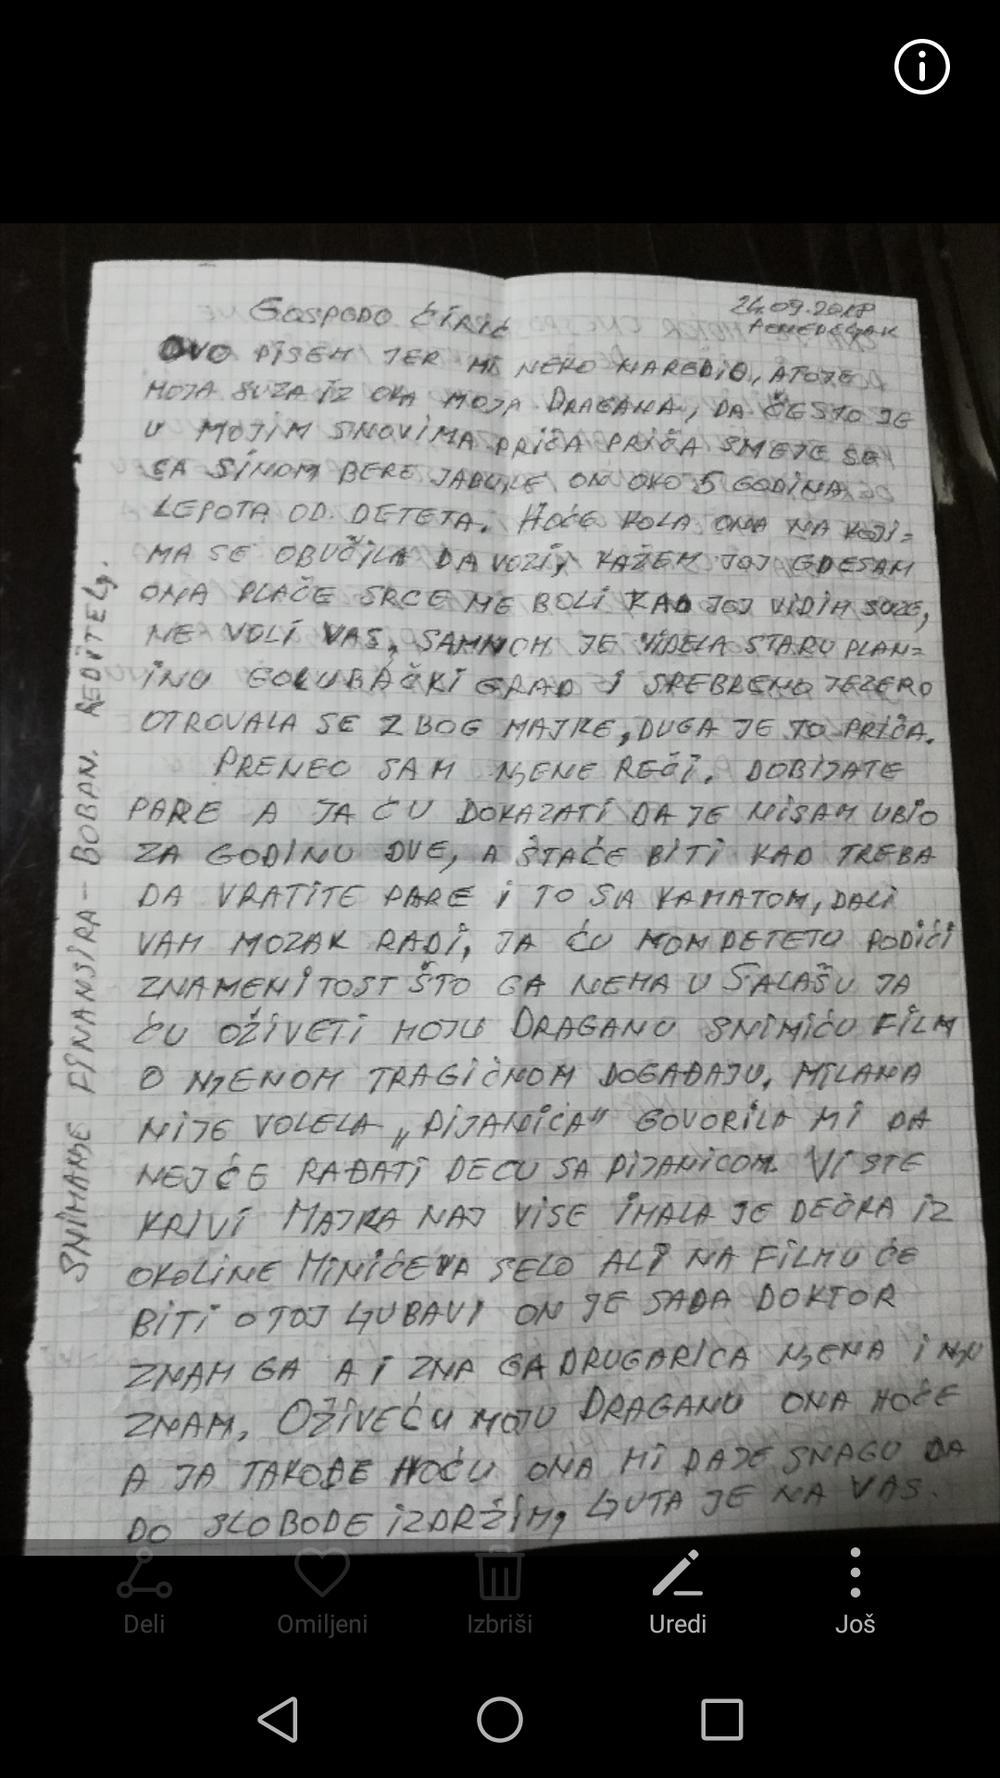 24.09.2018
PONEDELJAK
GOSPODO ĆIRIĆ
OVO PISEM JER MI NEKO NAREDIO, ATOJE
MOJA SUZA IZ OKA MOJA DRAGANA, DA ČESTO JE
U MOJIM SNOVIMA PRIČA PRIČA SMEJE SE
SA SINOM BERE JABUKE ON OKO 5 GODINA
LEPOTA OD DETETA. HOĆE KOLA ONA NA KOJI=
MA SE OBUČILA DA VOZI, KAŽEM JOJ GDESAM
ONA PLAČE SRCE ME BOLI KAD JOJ VIDIM SUZE,
NE VOLI VAS, SAMNOM JE VIDELA STARU PLAN=
INU GOLUBAČKI GRAD I SREBRENO JEZERO
OTROVALA SE ZBOG MAJKE, DUGA JE TO PRIČA.
PRENEO SAM NJENE REČI. DOBIJATE
PARE A JA ĆU DOKAZATI DA JE NISAM UBIO
ZA GODINU DVE, A ŠTAĆE BITI KAD TREBA
DA VRATITE PARE I TO SA KAMATOM, DALI
VAM MOZAK RADI, JA ĆU MOM DETETU PODIĆI
ZNAMENITOST ŠTO GA NEMA U SALAŠU JA
ĆU OŽIVETI MOJU DRAGANU SNIMIĆU FILM
O NJENOM TRAGIČNOM DOGAĐAJU. MILANA
NIJE VOLELA „PIJANICA" GOVORILA MI DA
NEJĆE RAĐATI DECU SA PIJANICOM. VI STE
KRIVI MAJKA NAJ VISE IMALA JE DEČKA IZ
OKOLINE MINIĆEVA SELO ALI NA FILMU ĆE
BITI O TOJ LJUBAVI ON JE SADA DOKTOR
ZNAM GA A I ZNA GA DRUGARICA NJENA I NJU
ZNAM. OŽIVEĆU MOJU DRAGANU ONA HOĆE
A JA TAKOĐE HOĆU ONA MI DAJE SNAGU DA
DO SLOBODE IZDRŽIM, LJUTA JE NA VAS.
SNIMANJE FINANSIRA - BOBAN. REDITELJ.
Deli
Omiljeni
Izbriši
Uredi
Još